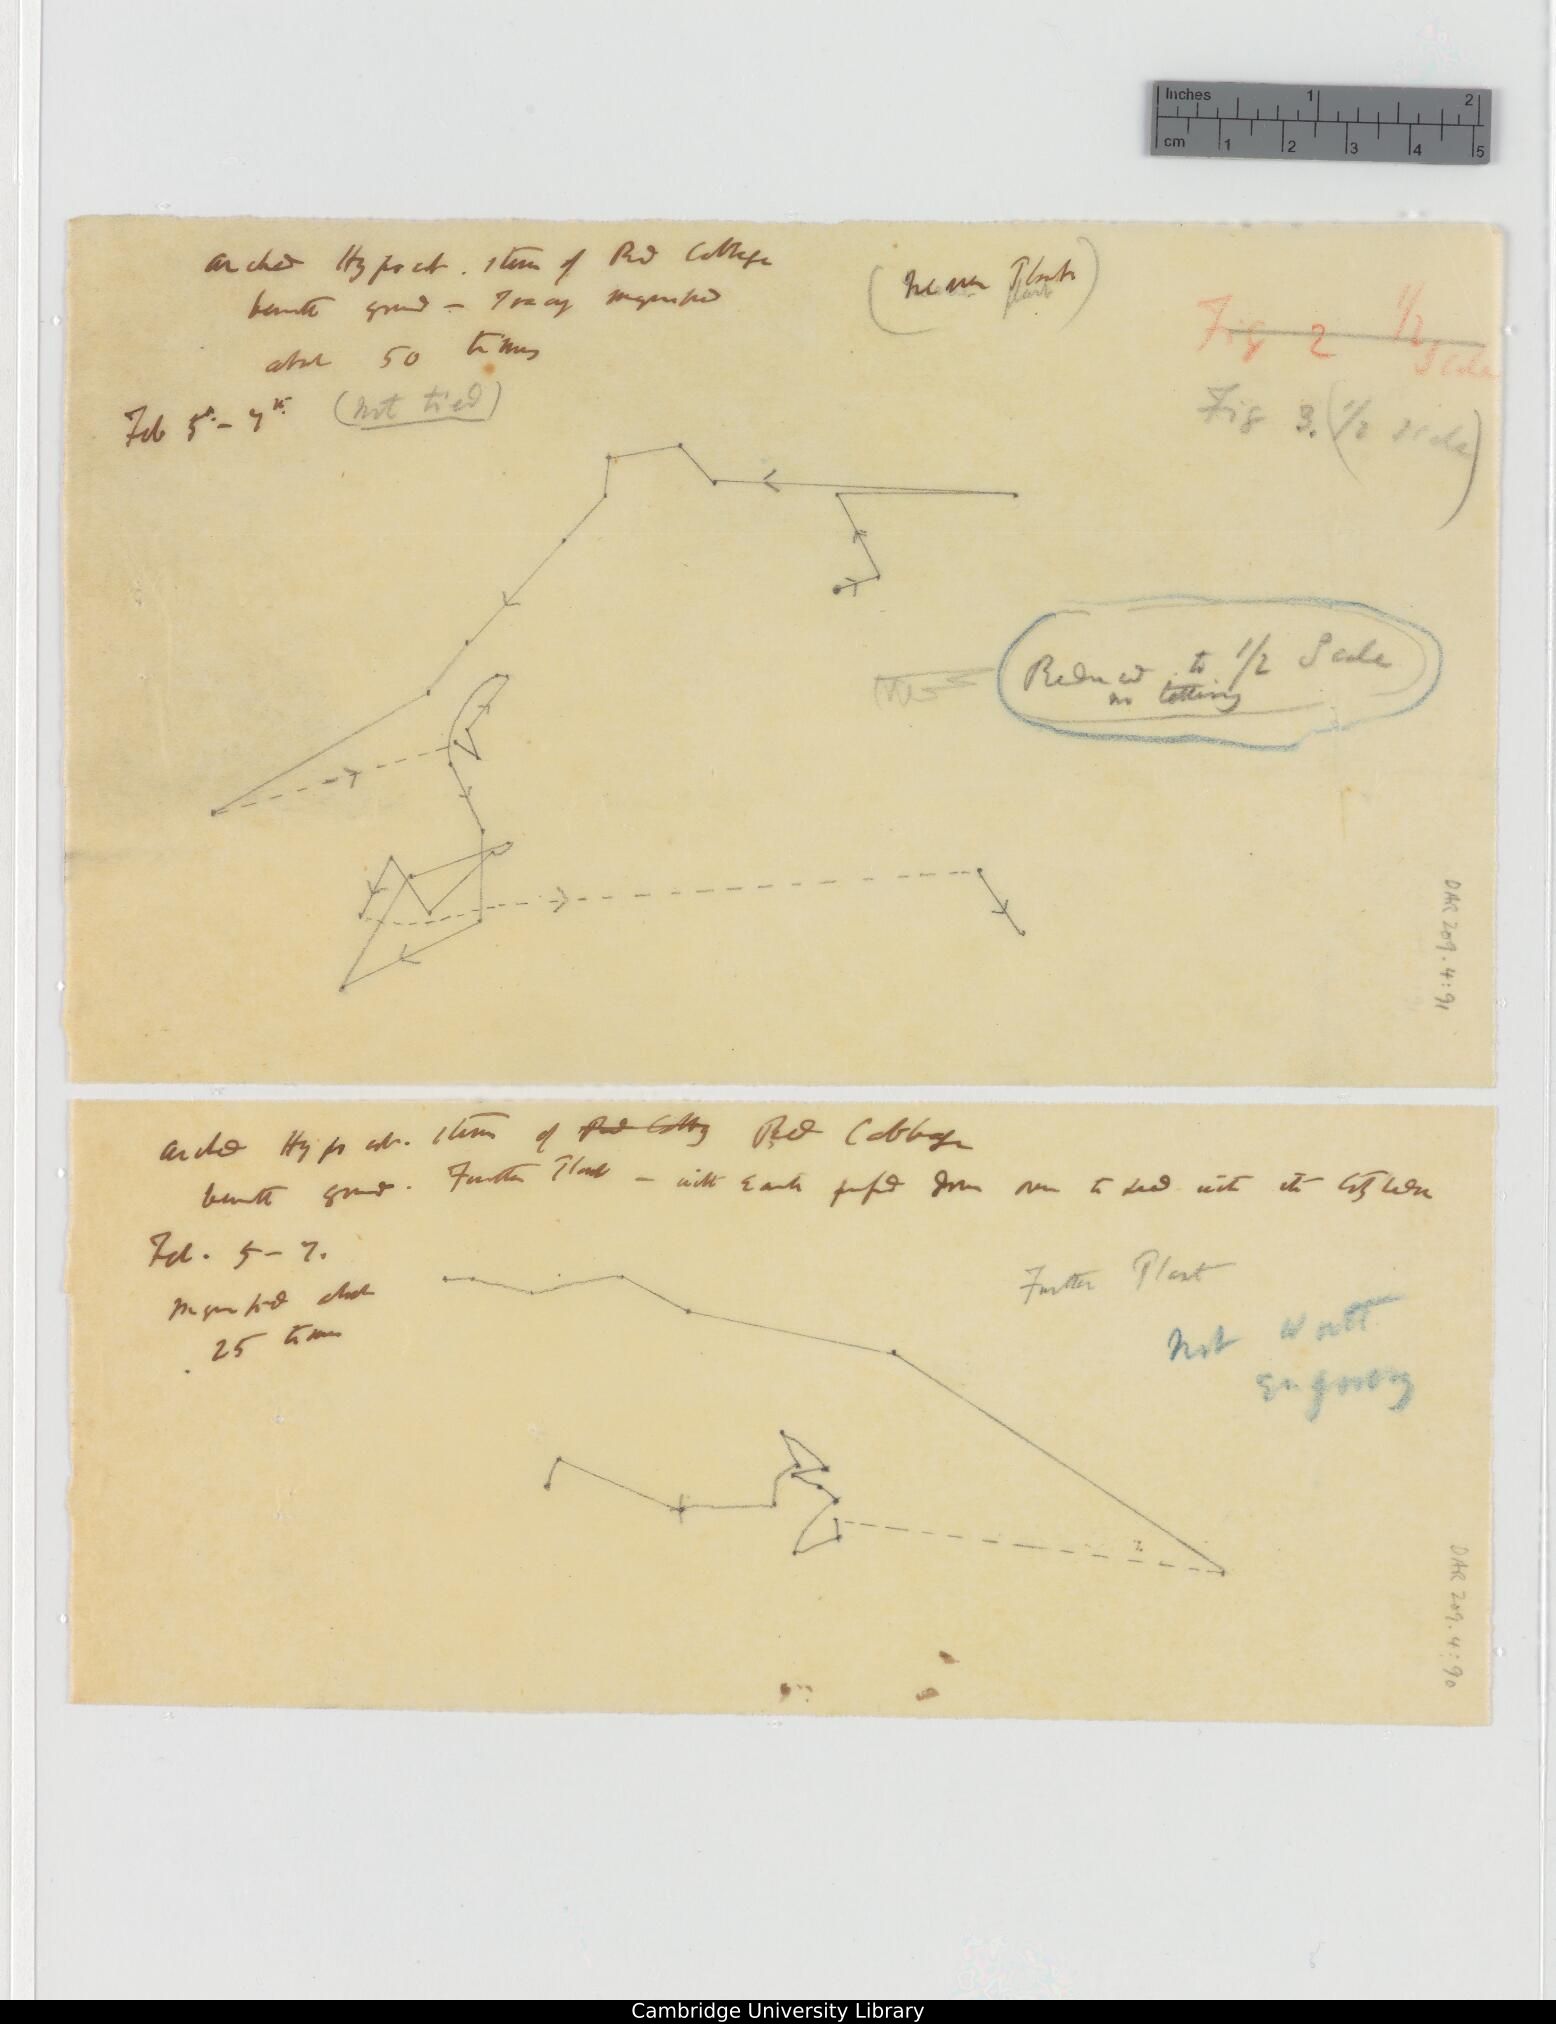 Inches 1 2
cm 1 2 3 4 5
Arched Hypocot. stem of Red Cabbage
beneath ground – Tracing magnified
about 50 times
(nearer Plant)
plant
Fig 2 1/2 Scale
Fig 3. (1/2 scale)
Feb 5th – 7th (not tied)
Reduced to 1/2 Scale
no lettering
DAR 209.4:91
Arched Hypocot. stem of Red Cabbg Red Cabbage
beneath ground. Further Plant – with Earth down over to seed with its Cotyledon
Feb. 5 – 7.
Magnified about
25 times
Further Plant
Not worth
Engraving
2
DAR 209.4:90
Cambridge University Library